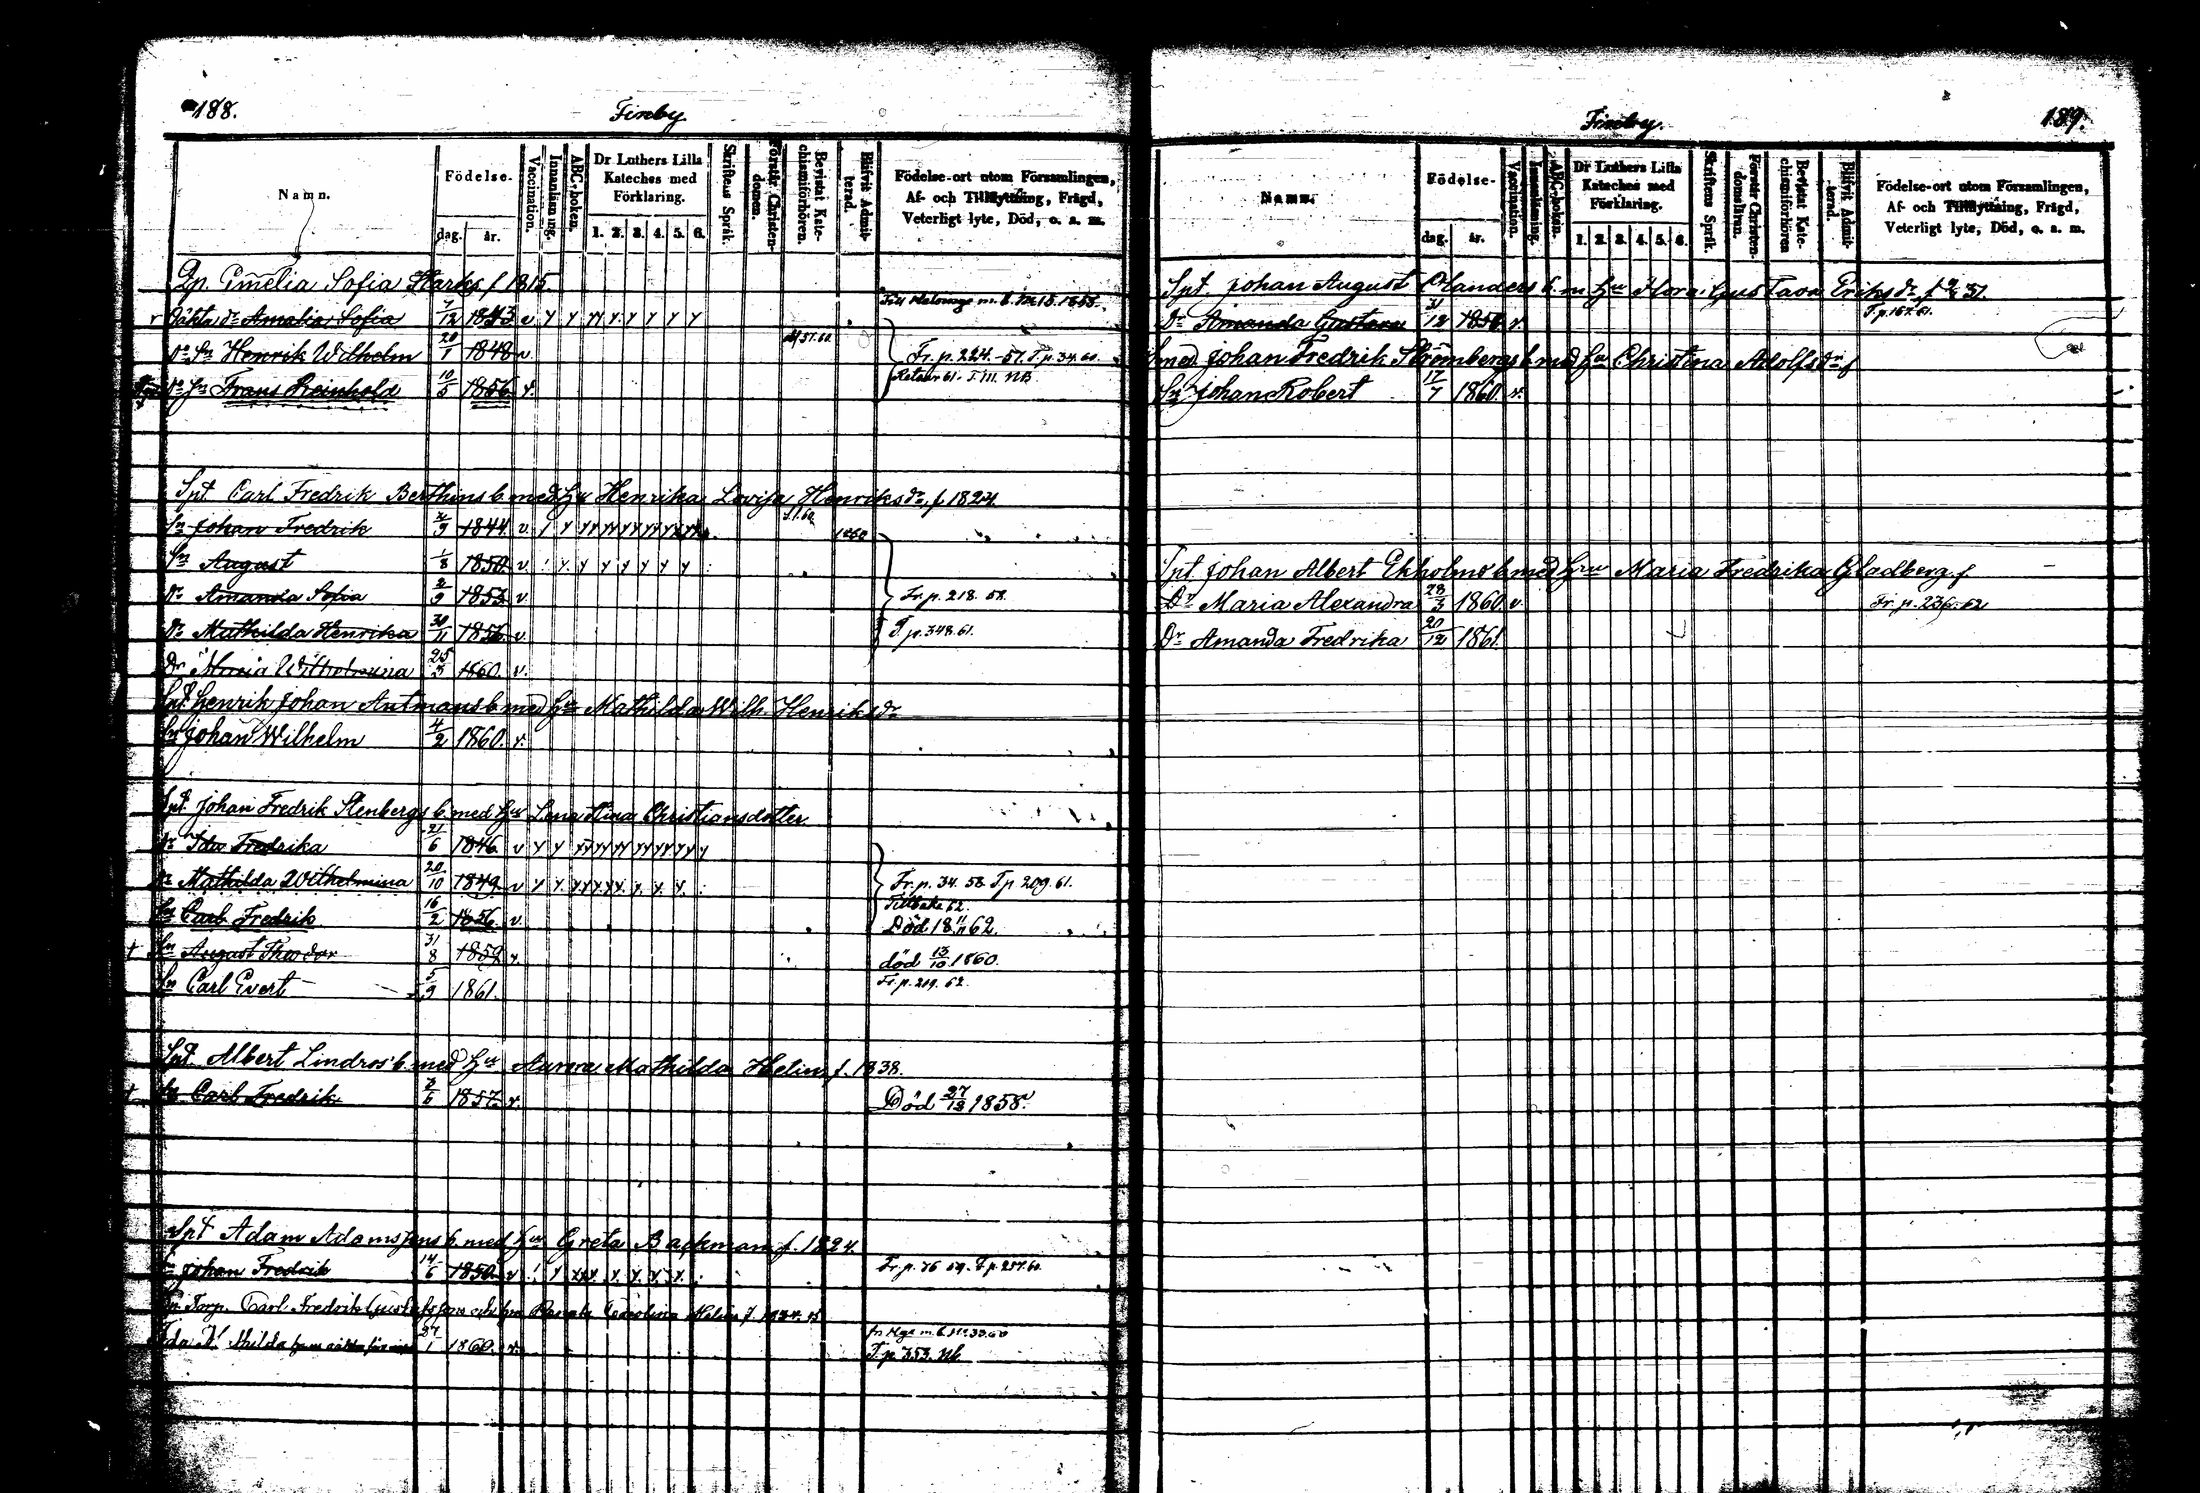 188.
Finby
Namn.
Födelse-
dag.
år.
Vaccination.
Innanläsning.
ABC-boken.
Dr Luthers Lilla Kateches med Förklaring.
1. 2. 3. 4. 5. 6.
Skriftens Språk.
Förstår Christendomen.
Bevistat Katechismiförhören.
Blifvit Admitterad.
Födelse-ort utom Församlingen, Af- och Tillflyttning, Frägd, Veterligt lyte, Död, o. a. m.
Emelia Sofia Starks f. 1815.
oäkta dr Amalia Sofia 7/12 1843 v
Do Sn Henrik Wilhelm 20/1 1848 v. Fr. p. 224.-57. T. p. 34. 60.
Do Sn Frans Reinhold 10/5 1856 v.
Spt Carl Fredrik Berthins b. med hu Henrika Lovisa Henriksdr f. 1824.
Sn Johan Fredrik 2/9 1844 v. 1860
Sn August 1/8 1850 v.
Dr Amanda Sofia 2/9 1853 v. Fr. p. 218. 58.
Dr Mathilda Henrika 30/11 1856 v. T. p. 348. 61.
Dr Maria Wilhelmina 25/3 1860. v.
Spt Henrik Johan Antmans b. med hu Mathilda Wilh. Henriksdr
Sn Johan Wilhelm 4/2 1860. v.
Spt. Johan Fredrik Stenbergs b. med hu Lena Stina Christiansdotter
Dr Ida Fredrika 21/6 1846 v
Dr Mathilda Wilhelmina 20/10 1849 v Fr. p. 34. 58. T. p. 209. 61.
Tillbaka 62.
Sn Carl Fredrik 16/2 1856 v. Död 18/11 62.
† Sn August Theodor 31/8 1859 v. död 13/10 1860.
Sn Carl Evert 5/9 1861. Fr. p. 209. 62.
Spt Albert Lindros' b. med hu Aurora Mathilda Helin f. 1838.
† Sn Carl Fredrik 3/6 1857 v. Död 27/12 1858.
Spt Adam Adamssons b. med hu Greta Backman f. 1824.
Sn Johan Fredrik 14/6 1850 v Fr. p. 76 59. T. p. 257. 60.
Torp. Carl Fredrik Gustafssons
27/1 1860. v.
T. p. 353. Nb.
Finby.
189.
Namn.
Födelse-
dag.
år.
Vaccination.
Innanläsning.
ABC-boken.
Dr Luthers Lilla Kateches med Förklaring.
1. 2. 3. 4. 5. 6.
Skriftens Språk.
Förstår Christendomsläran.
Bevistat Katechismiförhören
Blifvit Admitterad.
Födelse-ort utom Församlingen, Af- och Tillflyttning, Frägd, Veterligt lyte, Död, o. a. m.
Spt. Johan August Olanders b. m. hu Flora Gustava Eriksdr f.
Dr Amanda Gustava 31/12 1858. v. T. p. 167. 61.
Smed Johan Fredrik Strömbergs b. med hu Christina Adolfsdr f
Sn Johan Robert 17/7 1860. v.
Spt Johan Albert Ekholms b. med hru Maria Fredrika Gladberg f.
Dr Maria Alexandra 28/3 1860 v. Fr. p. 236. 62
Dr Amanda Fredrika 20/12 1861.